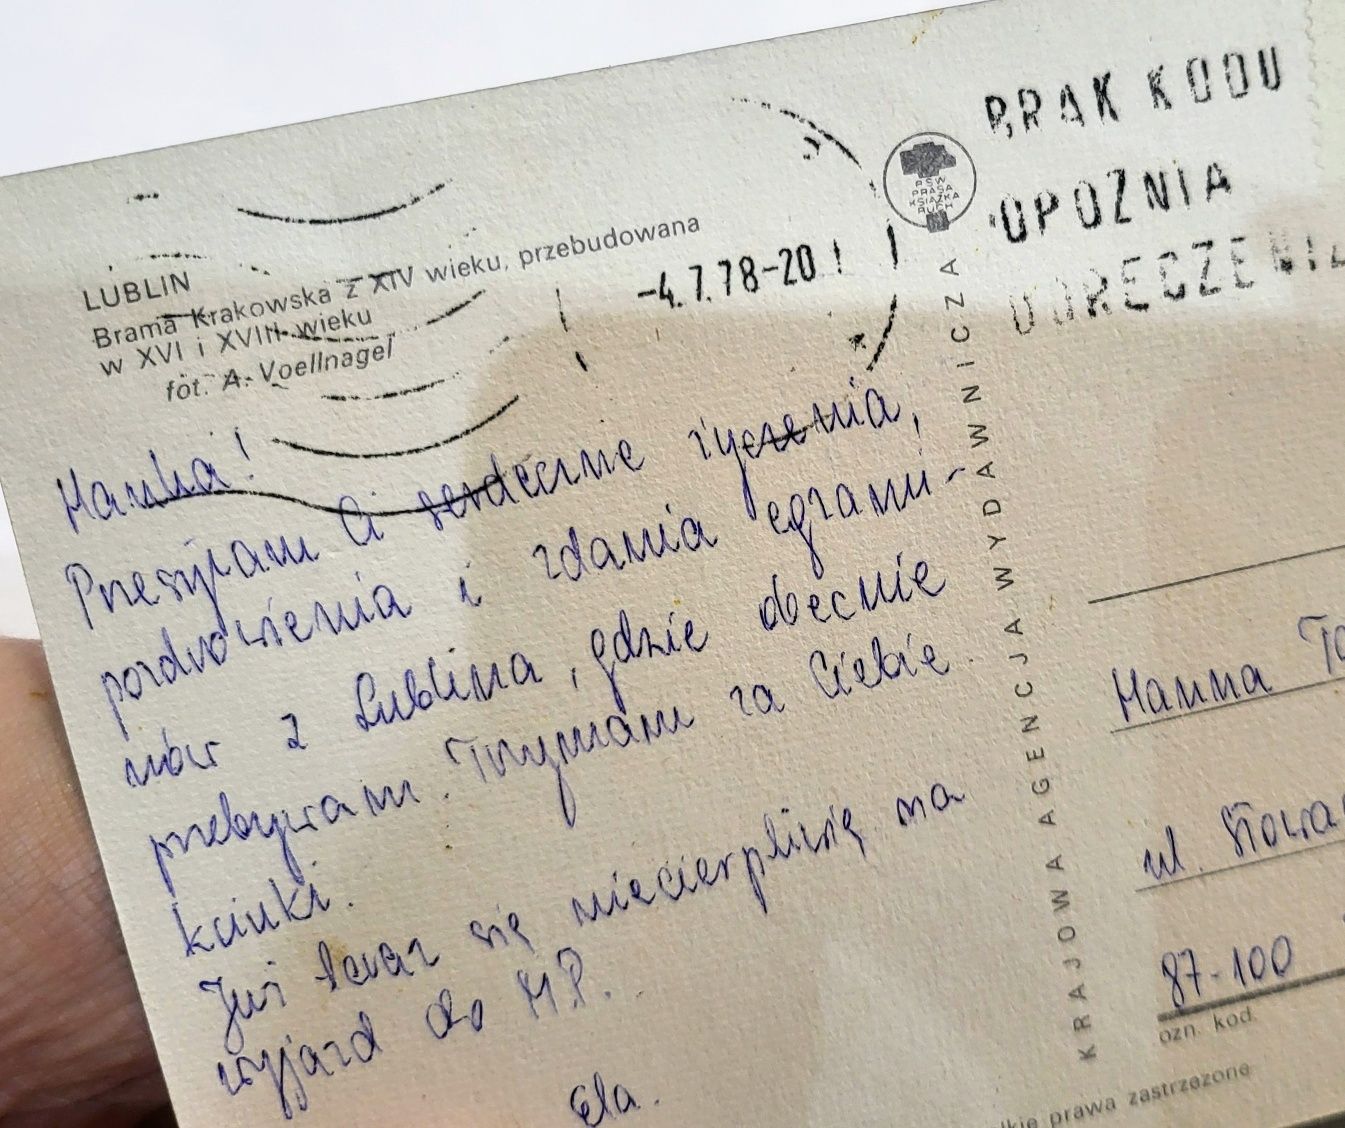 LUBLIN
Brama Krakowska z XIV wieku, przebudowana
w XVI i XVIII wieku
fot. A. Voellnagel
-4.7.78-20
RSW
PRASA
KSIĄŻKA
RUCH
BRAK KODU
OPOZNIA
DORECZENIE
Hanka!
Przesyłam Ci serdeczne życzenia,
pozdrowienia i zdania egzami-
nów z Lublina, gdzie obecnie
przebywam. Trzymam za Ciebie
kciuki.
Już teraz się niecierpliwię na
wyjazd do M.P.
Ela.
KRAJOWA AGENCJA WYDAWNICZA
Hanna
ul.
87-100
ozn. kod.
prawa zastrzeżone